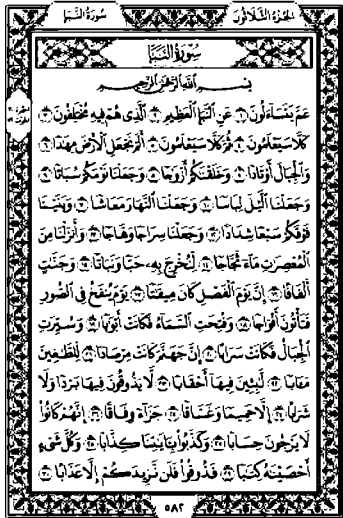 الجزء الثلاثون سورة النبأ
سُورَةُ النَّبَإِ
بِسْمِ اللَّهِ الرَّحْمَٰنِ الرَّحِيمِ
عَمَّ يَتَسَاءَلُونَ ١ عَنِ النَّبَإِ الْعَظِيمِ ٢ الَّذِي هُمْ فِيهِ مُخْتَلِفُونَ ٣
كَلَّا سَيَعْلَمُونَ ٤ ثُمَّ كَلَّا سَيَعْلَمُونَ ٥ أَلَمْ نَجْعَلِ الْأَرْضَ مِهَادًا ٦
وَالْجِبَالَ أَوْتَادًا ٧ وَخَلَقْنَاكُمْ أَزْوَاجًا ٨ وَجَعَلْنَا نَوْمَكُمْ سُبَاتًا ٩
وَجَعَلْنَا اللَّيْلَ لِبَاسًا ١٠ وَجَعَلْنَا النَّهَارَ مَعَاشًا ١١ وَبَنَيْنَا
فَوْقَكُمْ سَبْعًا شِدَادًا ١٢ وَجَعَلْنَا سِرَاجًا وَهَّاجًا ١٣ وَأَنْزَلْنَا مِنَ
الْمُعْصِرَاتِ مَاءً ثَجَّاجًا ١٤ لِنُخْرِجَ بِهِ حَبًّا وَنَبَاتًا ١٥ وَجَنَّاتٍ
أَلْفَافًا ١٦ إِنَّ يَوْمَ الْفَصْلِ كَانَ مِيقَاتًا ١٧ يَوْمَ يُنْفَخُ فِي الصُّورِ
فَتَأْتُونَ أَفْوَاجًا ١٨ وَفُتِحَتِ السَّمَاءُ فَكَانَتْ أَبْوَابًا ١٩ وَسُيِّرَتِ
الْجِبَالُ فَكَانَتْ سَرَابًا ٢٠ إِنَّ جَهَنَّمَ كَانَتْ مِرْصَادًا ٢١ لِلطَّاغِينَ
مَآبًا ٢٢ لَابِثِينَ فِيهَا أَحْقَابًا ٢٣ لَا يَذُوقُونَ فِيهَا بَرْدًا وَلَا
شَرَابًا ٢٤ إِلَّا حَمِيمًا وَغَسَّاقًا ٢٥ جَزَاءً وِفَاقًا ٢٦ إِنَّهُمْ كَانُوا
لَا يَرْجُونَ حِسَابًا ٢٧ وَكَذَّبُوا بِآيَاتِنَا كِذَّابًا ٢٨ وَكُلَّ شَيْءٍ
أَحْصَيْنَاهُ كِتَابًا ٢٩ فَذُوقُوا فَلَنْ نَزِيدَكُمْ إِلَّا عَذَابًا ٣٠
٥٨٢